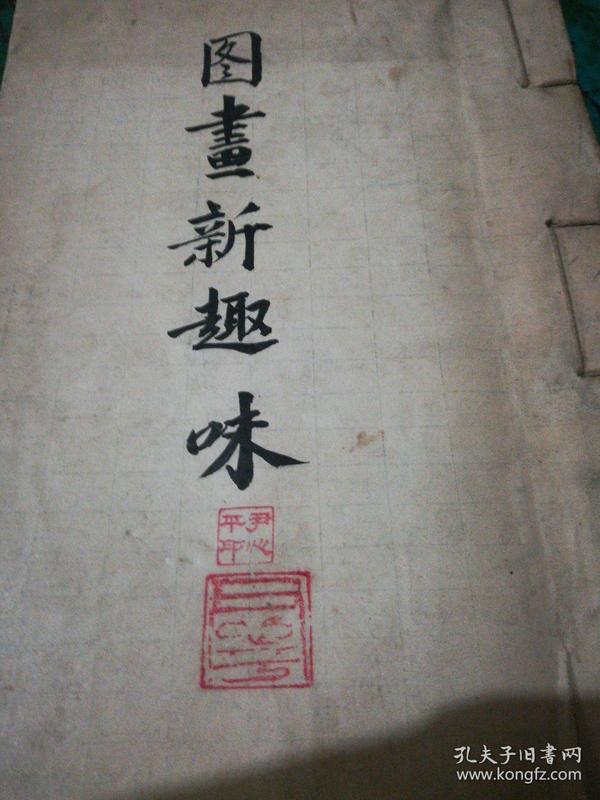 图畫新趣味
尹心
平印
孔夫子旧書网
www.kongfz.com